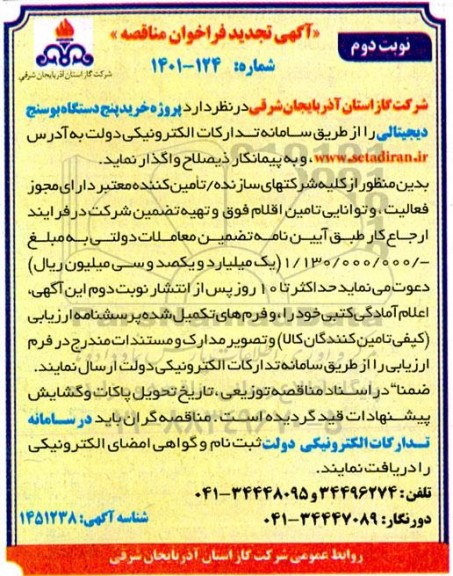 «آگهی تجدید فراخوان مناقصه»
نوبت دوم
شماره: ۱۲۴-۱۴۰۱
شرکت گاز استان آذربایجان شرقی
شرکت گاز استان آذربایجان شرقی در نظر دارد پروژه خرید پنج دستگاه بوسنج
دیجیتالی را از طریق سامانه تدارکات الکترونیکی دولت به آدرس
www.setadiran.ir ، و به پیمانکار ذیصلاح واگذار نماید.
بدین منظور از کلیه شرکتهای سازنده/تأمین کننده معتبر دارای مجوز
فعالیت ، و توانایی تامین اقلام فوق و تهیه تضمین شرکت در فرایند
ارجاع کار طبق آیین نامه تضمین معاملات دولتی به مبلغ
۱/۱۳۰/۰۰۰/۰۰۰/- (یک میلیارد و یکصد و سی میلیون ریال)
دعوت می نماید حداکثر تا ۱۰ روز پس از انتشار نوبت دوم این آگهی،
اعلام آمادگی کتبی خود را، و فرم های تکمیل شده پرسشنامه ارزیابی
(کیفی تامین کنندگان کالا) و تصویر مدارک و مستندات مندرج در فرم
ارزیابی را از طریق سامانه تدارکات الکترونیکی دولت ارسال نمایند.
ضمنا" در اسناد مناقصه توزیعی ، تاریخ تحویل پاکات و گشایش
پیشنهادات قید گردیده است . مناقصه گران باید در سامانه
تدارکات الکترونیکی دولت ثبت نام و گواهی امضای الکترونیکی
را دریافت نمایند.
تلفن: ۳۴۴۹۶۲۷۴ و ۳۴۴۴۸۰۹۵-۰۴۱
دورنگار: ۳۴۴۴۷۰۸۹-۰۴۱
شناسه آگهی: ۱۴۵۱۲۳۸
روابط عمومی شرکت گاز استان آذربایجان شرقی